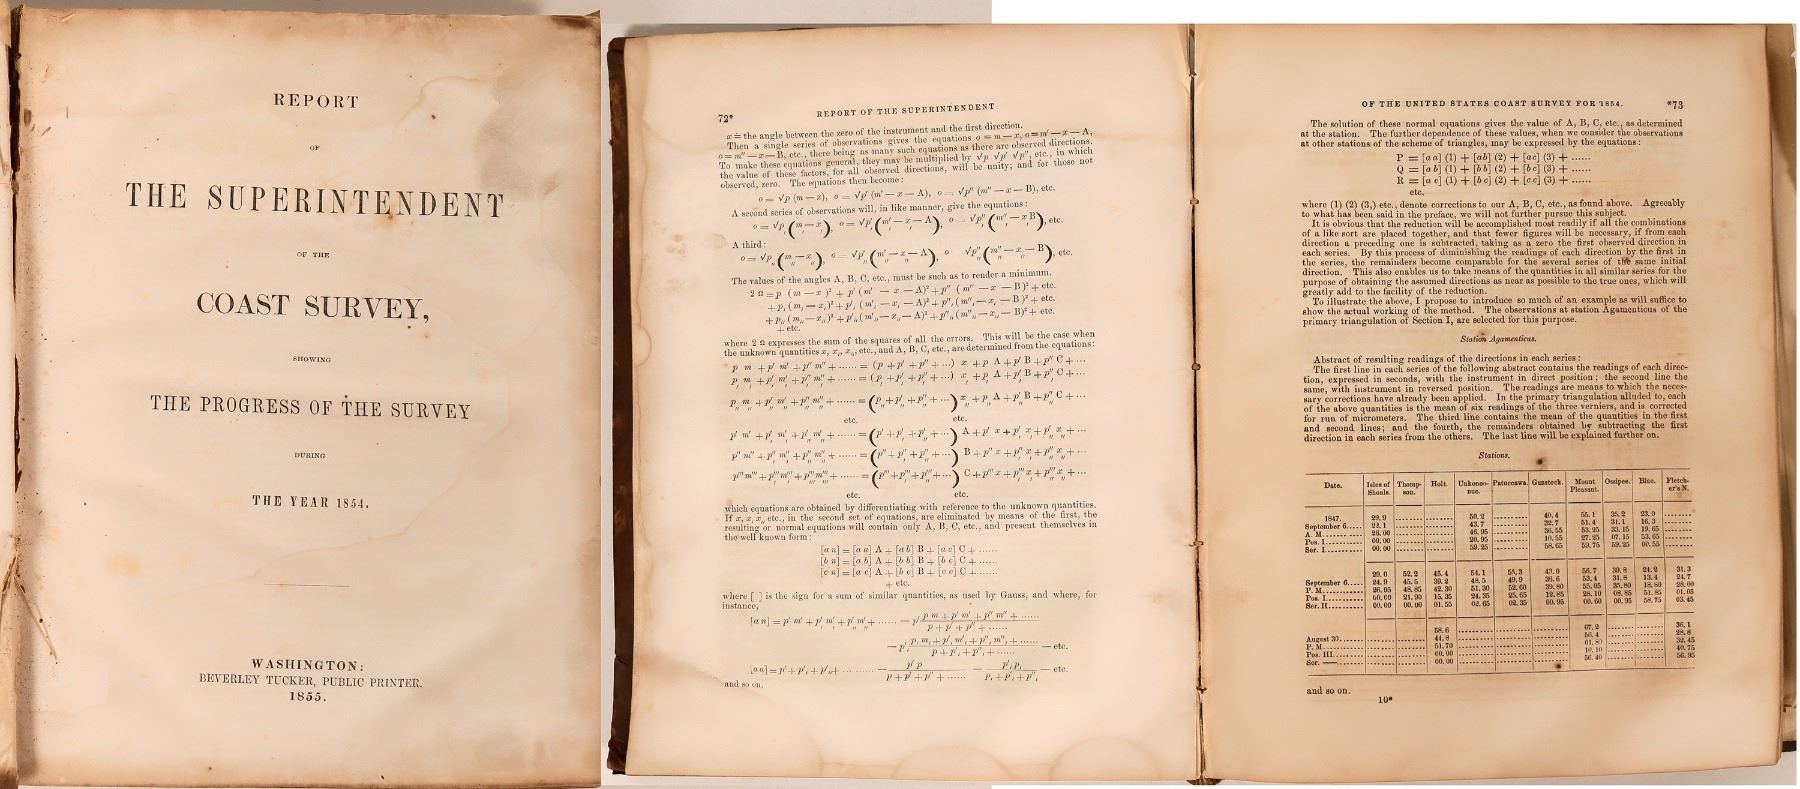 REPORT
OF
THE SUPERINTENDENT
OF THE
COAST SURVEY,
SHOWING
THE PROGRESS OF THE SURVEY
DURING
THE YEAR 1854.
WASHINGTON:
BEVERLEY TUCKER, PUBLIC PRINTER.
1855.
72* REPORT OF THE SUPERINTENDENT
x = the angle between the zero of the instrument and the first direction.
Then a single series of observations gives the equations o = m — x, o = m′ — x — A,
o = m″ — x — B, etc., there being as many such equations as there are observed directions.
To make these equations general, they may be multiplied by √p √p′ √p″, etc., in which
the value of these factors, for all observed directions, will be unity; and for those not
observed, zero. The equations then become:
o = √p (m — x), o = √p′ (m′ — x — A), o = √p″ (m″ — x — B), etc.
A second series of observations will, in like manner, give the equations:
o = √p, (m — x), o = √p′, (m′ — x — A), o √p″, (m″ — x B), etc.
A third:
o = √p,, (m — x), o = √p′,, (m′ — x — A), o √p″,, (m″ — x — B), etc.
The values of the angles A, B, C, etc., must be such as to render a minimum.
2 Ω = p (m — x)² + p′ (m′ — x — A)² + p″ (m″ — x — B)² + etc.
+ p, (m, — x,)² + p′, (m′, — x, — A)² + p″, (m″, — x, — B)² + etc.
+ p,, (m,, — x,,)² + p′,, (m′,, — x,, — A)² + p″,, (m″,, — x,, — B)² + etc.
+ etc.
where 2 Ω expresses the sum of the squares of all the errors. This will be the case when
the unknown quantities x, x,, x,,, etc., and A, B, C, etc., are determined from the equations:
p m + p′ m′ + p″ m″ + ...... = (p + p′ + p″ + ...) x + p A + p′ B + p″ C + ...
p, m, + p′, m′, + p″, m″, + ...... = (p, + p′, + p″, + ...) x, + p, A + p′, B + p″, C + ...
p,, m,, + p′,, m′,, + p″,, m″,, + ...... = (p,, + p′,, + p″,, + ...) x,, + p,, A + p′,, B + p″,, C + ...
etc. etc.
p′ m′ + p′, m′, + p′,, m′,, + ...... = (p′ + p′, + p′,, + ...) A + p′ x + p′, x, + p′,, x,, + ...
p″ m″ + p″, m″, + p″,, m″,, + ...... = (p″ + p″, + p″,, + ...) B + p″ x + p″, x, + p″,, x,, + ...
p‴ m‴ + p‴, m‴, + p‴,, m‴,, + ...... = (p‴ + p‴, + p‴,, + ...) C + p‴ x + p‴, x, + p‴,, x,, + ...
etc. etc.
which equations are obtained by differentiating with reference to the unknown quantities.
If x, x, x,, etc., in the second set of equations, are eliminated by means of the first, the
resulting or normal equations will contain only A, B, C, etc., and present themselves in
the well known form:
[a n] = [a a] A + [a b] B + [a c] C + ......
[b n] = [a b] A + [b b] B + [b c] C + ......
[c n] = [a c] A + [b c] B + [c c] C + ......
+ etc.
where [ ] is the sign for a sum of similar quantities, as used by Gauss, and where, for
instance,
[a n] = p′ m′ + p′, m′, + p′,, m′,, + ...... — p′ p m + p′ m′ + p″ m″ + ......
p + p′ + p″ + ......
— p′, p, m, + p′, m′, + p″, m″, + ...... — etc.
p + p′, + p″, + ......
[a a] = p′ + p′, + p′,, + ...... — p′ p — p′, p, — etc.
p + p′ + p″ + ...... p, + p′, + p″,
and so on.
OF THE UNITED STATES COAST SURVEY FOR 1854. *73
The solution of these normal equations gives the value of A, B, C, etc., as determined
at the station. The further dependence of these values, when we consider the observations
at other stations of the scheme of triangles, may be expressed by the equations:
P = [a a] (1) + [ab] (2) + [ac] (3) + ......
Q = [a b] (1) + [b b] (2) + [b c] (3) + ......
R = [a c] (1) + [b c] (2) + [c c] (3) + ......
etc.
where (1) (2) (3,) etc., denote corrections to our A, B, C, etc., as found above. Agreeably
to what has been said in the preface, we will not further pursue this subject.
It is obvious that the reduction will be accomplished most readily if all the combinations
of a like sort are placed together, and that fewer figures will be necessary, if from each
direction a preceding one is subtracted, taking as a zero the first observed direction in
each series. By this process of diminishing the readings of each direction by the first in
the series, the remainders become comparable for the several series of the same initial
direction. This also enables us to take means of the quantities in all similar series for the
purpose of obtaining the assumed directions as near as possible to the true ones, which will
greatly add to the facility of the reduction.
To illustrate the above, I propose to introduce so much of an example as will suffice to
show the actual working of the method. The observations at station Agamenticus of the
primary triangulation of Section I, are selected for this purpose.
Station Agamenticus.
Abstract of resulting readings of the directions in each series:
The first line in each series of the following abstract contains the readings of each direc-
tion, expressed in seconds, with the instrument in direct position; the second line the
same, with instrument in reversed position. The readings are means to which the neces-
sary corrections have already been applied. In the primary triangulation alluded to, each
of the above quantities is the mean of six readings of the three verniers, and is corrected
for run of micrometers. The third line contains the mean of the quantities in the first
and second lines; and the fourth, the remainders obtained by subtracting the first
direction in each series from the others. The last line will be explained further on.
Stations.
Date. Isles of Shoals. Thomp-son. Holt. Unkonoo-nuc. Patuccawa. Gunstock. Mount Pleasant. Ossipee. Blue. Fletch-er's N.
1847. 29.9 50.2 40.4 55.1 35.2 23.0
September 6..... 23.1 43.7 32.7 51.4 31.1 16.3
A. M. 26.00 46.95 36.55 53.25 33.15 19.65
Pos. I. 00.00 20.95 10.55 27.25 07.15 53.65
Ser. I. 00.00 59.25 58.65 59.75 59.25 00.55
29.0 52.2 45.4 54.1 55.3 43.0 56.7 39.8 24.2 31.3
September 6..... 24.9 45.5 39.2 48.5 49.9 36.6 53.4 31.8 13.4 24.7
P. M. 26.95 48.85 42.30 51.30 52.60 39.80 55.05 35.80 18.80 28.00
Pos. I. 00.00 21.90 15.35 24.35 25.65 12.85 28.10 08.85 51.85 01.05
Ser. II. 00.00 00.00 01.55 02.65 02.35 00.95 00.60 00.95 58.75 03.45
58.6 67.2 36.1
August 30. 44.8 56.4 28.8
P. M. 51.70 01.80 32.45
Pos. III. 00.00 10.10 40.75
Ser. — 00.00 56.40 56.95
and so on.
10*